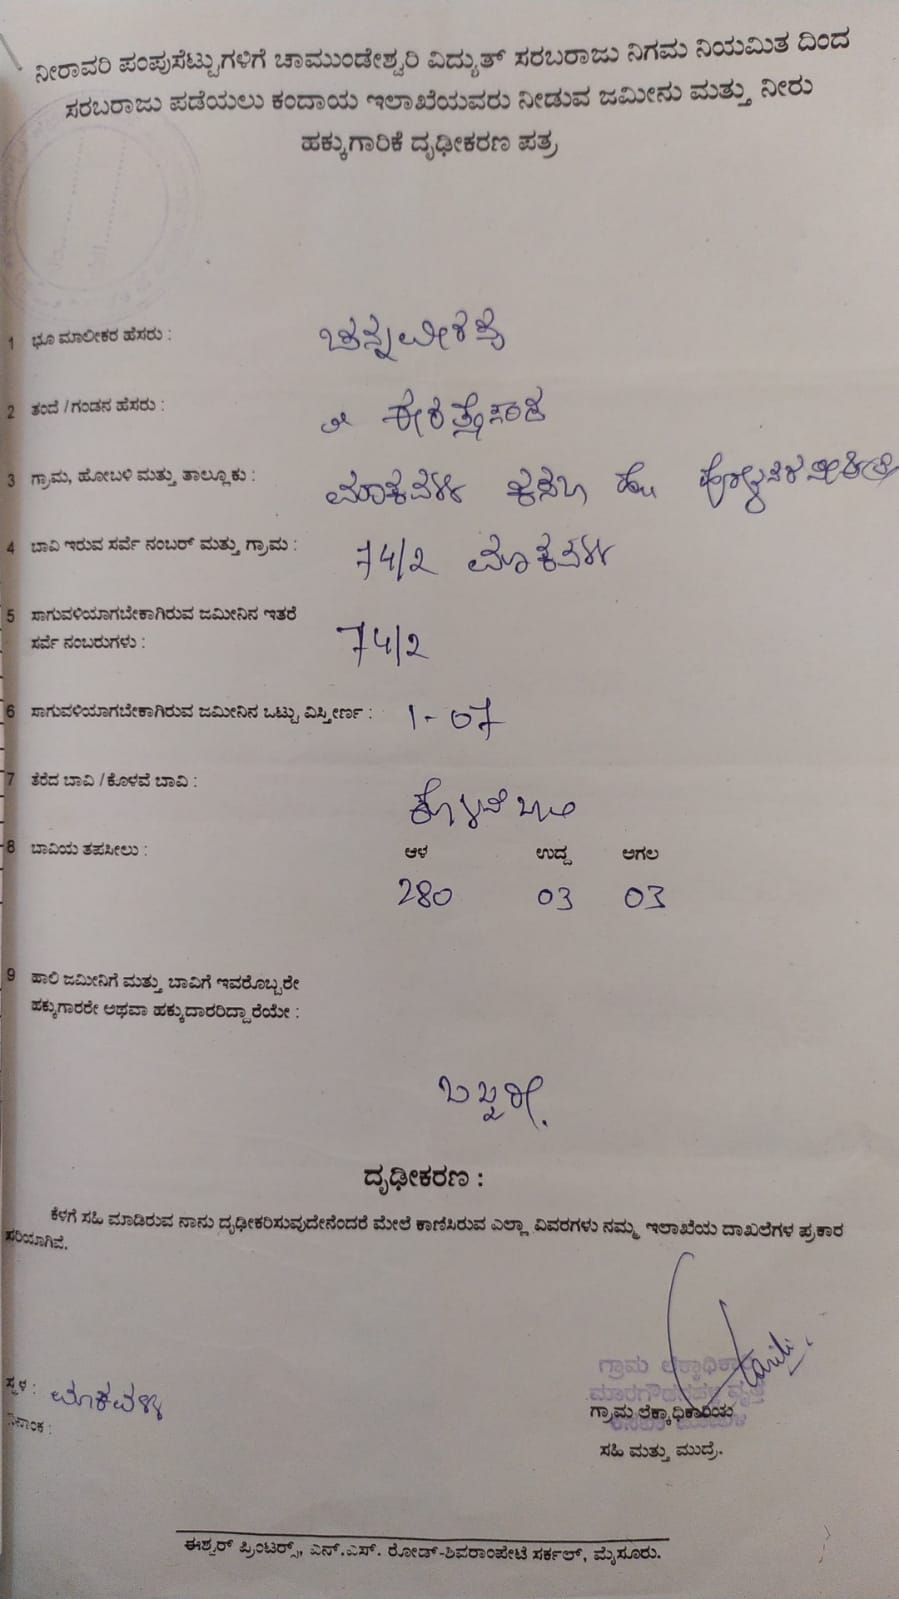 ನೀರಾವರಿ ಪಂಪುಸೆಟ್ಟುಗಳಿಗೆ ಚಾಮುಂಡೇಶ್ವರಿ ವಿದ್ಯುತ್ ಸರಬರಾಜು ನಿಗಮ ನಿಯಮಿತ ದಿಂದ
ಸರಬರಾಜು ಪಡೆಯಲು ಕಂದಾಯ ಇಲಾಖೆಯವರು ನೀಡುವ ಜಮೀನು ಮತ್ತು ನೀರು
ಹಕ್ಕುಗಾರಿಕೆ ದೃಢೀಕರಣ ಪತ್ರ
1 ಭೂ ಮಾಲೀಕರ ಹೆಸರು :
2 ತಂದೆ / ಗಂಡನ ಹೆಸರು :
3 ಗ್ರಾಮ, ಹೋಬಳಿ ಮತ್ತು ತಾಲ್ಲೂಕು : ಕಸಬಾ
4 ಬಾವಿ ಇರುವ ಸರ್ವೆ ನಂಬರ್ ಮತ್ತು ಗ್ರಾಮ : 74/2
5 ಸಾಗುವಳಿಯಾಗಬೇಕಾಗಿರುವ ಜಮೀನಿನ ಇತರೆ
ಸರ್ವೆ ನಂಬರುಗಳು : 74/2
6 ಸಾಗುವಳಿಯಾಗಬೇಕಾಗಿರುವ ಜಮೀನಿನ ಒಟ್ಟು ವಿಸ್ತೀರ್ಣ : 1-07
7 ತೆರೆದ ಬಾವಿ / ಕೊಳವೆ ಬಾವಿ : ಕೊಳವೆ ಬಾವಿ
8 ಬಾವಿಯ ತಪಸೀಲು : ಆಳ ಉದ್ದ ಅಗಲ
280 03 03
9 ಹಾಲಿ ಜಮೀನಿಗೆ ಮತ್ತು ಬಾವಿಗೆ ಇವರೊಬ್ಬರೇ
ಹಕ್ಕುಗಾರರೇ ಅಥವಾ ಹಕ್ಕುದಾರರಿದ್ದಾರೆಯೇ :
ಒಬ್ಬರೇ.
ದೃಢೀಕರಣ :
ಕೆಳಗೆ ಸಹಿ ಮಾಡಿರುವ ನಾನು ದೃಢೀಕರಿಸುವುದೇನೆಂದರೆ ಮೇಲೆ ಕಾಣಿಸಿರುವ ಎಲ್ಲಾ ವಿವರಗಳು ನಮ್ಮ ಇಲಾಖೆಯ ದಾಖಲೆಗಳ ಪ್ರಕಾರ
ಸರಿಯಾಗಿವೆ.
ಸ್ಥಳ :
ದಿನಾಂಕ :
ಗ್ರಾಮ ಲೆಕ್ಕಾಧಿಕಾರಿಯ
ಸಹಿ ಮತ್ತು ಮುದ್ರೆ.
ಈಶ್ವರ್ ಪ್ರಿಂಟರ್ಸ್, ಎನ್.ಎಸ್. ರೋಡ್-ಶಿವರಾಂಪೇಟೆ ಸರ್ಕಲ್, ಮೈಸೂರು.